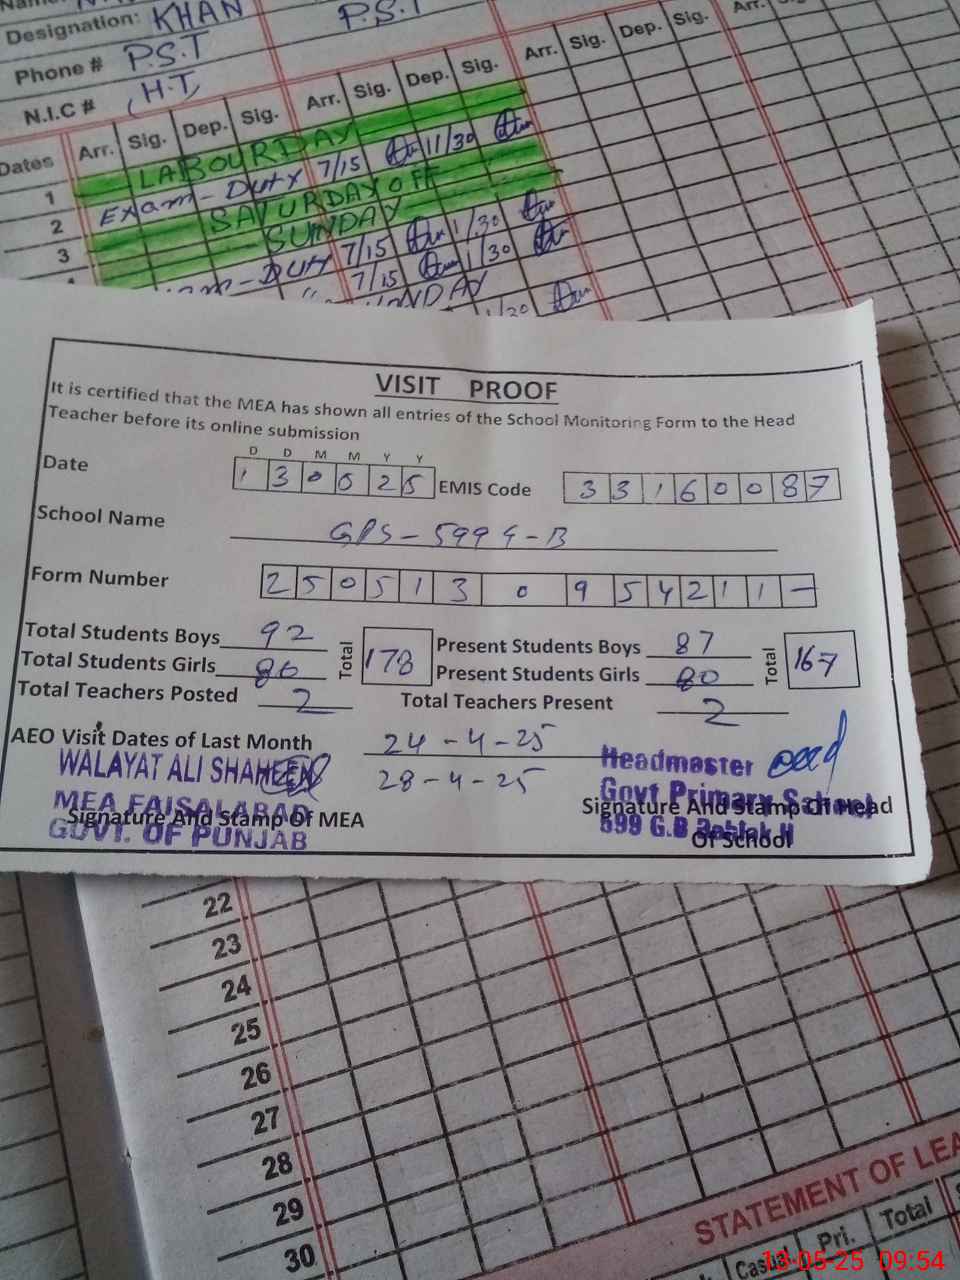 Designation: KHAN
P.S.T
Phone # P.S.T
N.I.C # (H.T)
Dates Arr. Sig. Dep. Sig. Arr. Sig. Dep. Sig. Arr. Sig. Dep. Sig. Arr.
1 LABOUR DAY
2 Exam-Duty 7/15 11/30
3 SATURDAY OFF
SUNDAY
Duty 7/15 1/30
" 7/15 1/30
VISIT PROOF
It is certified that the MEA has shown all entries of the School Monitoring Form to the Head
Teacher before its online submission
D D M M Y Y
Date 1 3 0 5 2 5 EMIS Code 3 3 1 6 0 0 8 7
School Name GPS-599 G-B
Form Number 2 5 0 5 1 3 0 9 5 4 2 1 1 -
Total Students Boys 92 Total 178 Present Students Boys 87 Total 167
Total Students Girls 86 Present Students Girls 80
Total Teachers Posted 2 Total Teachers Present 2
AEO Visit Dates of Last Month 24-4-25
28-4-25
WALAYAT ALI SHAHEEN
MEA FAISALABAD
GOVT. OF PUNJAB
Signature And Stamp Of MEA
Headmaster
Govt Primary School
599 G.B
Signature And Stamp Of Head
Of School
22
23
24
25
26
27
28
29
30
STATEMENT OF LEA
Casual Pri. Total
13-05-25 09:54